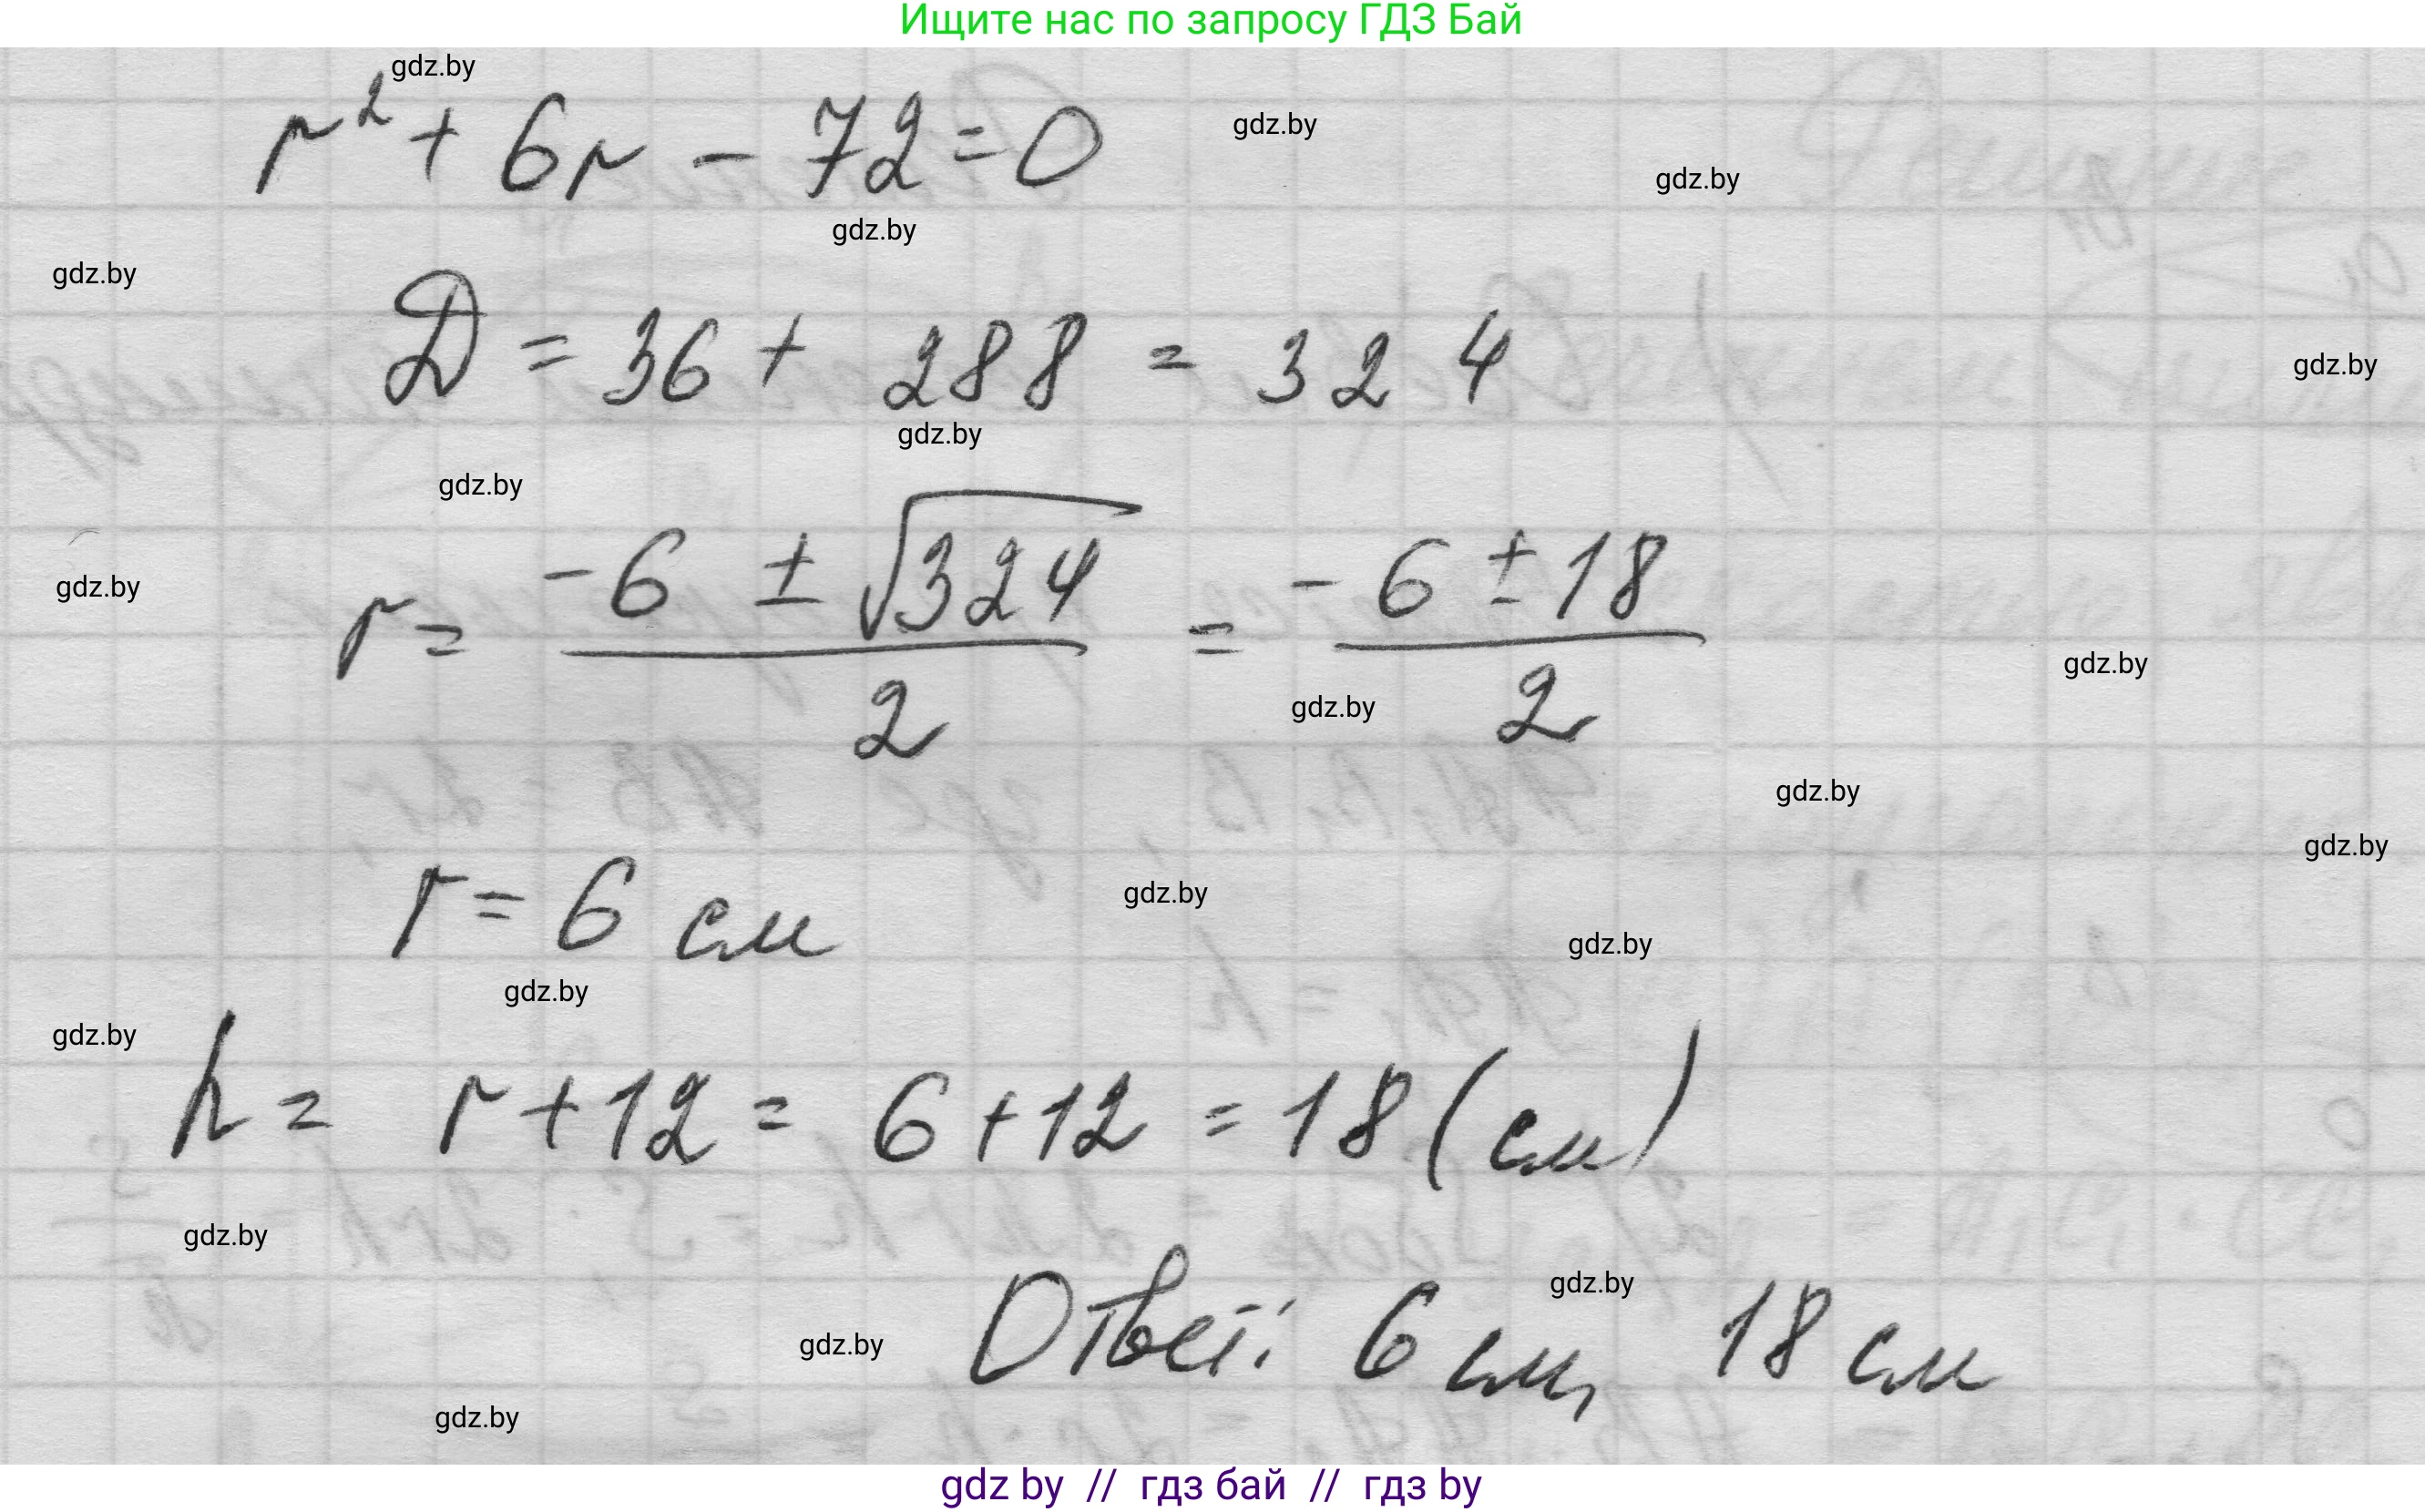 Ищите нас по запросу ГДЗ Бай
gdz.by
r² + 6r - 72 = 0
gdz.by
gdz.by
gdz.by
gdz.by
D = 36 + 288 = 324
gdz.by
gdz.by
gdz.by
r = (-6 ± √324)/2 = (-6 ± 18)/2
gdz.by
gdz.by
gdz.by
gdz.by
gdz.by
r = 6 см
gdz.by
gdz.by
gdz.by
gdz.by
h = r + 12 = 6 + 12 = 18 (см)
gdz.by
gdz.by
Ответ: 6 см, 18 см
gdz.by
gdz.by
gdz by // гдз бай // гдз by